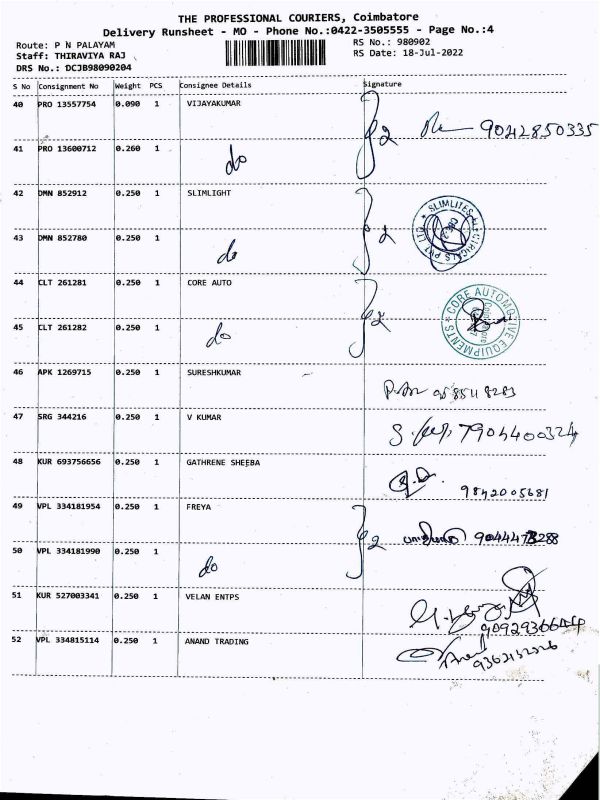 THE PROFESSIONAL COURIERS, Coimbatore
Delivery Runsheet - MO - Phone No.:0422-3505555 - Page No.:4
Route: P N PALAYAM RS No.: 980902
Staff: THIRAVIYA RAJ RS Date: 18-Jul-2022
DRS No.: DCJB98090204
S No Consignment No Weight PCS Consignee Details Signature
40 PRO 13557754 0.090 1 VIJAYAKUMAR
2 9042850335
41 PRO 13600712 0.260 1 do
42 DMN 852912 0.250 1 SLIMLIGHT
SLIMLITES ELECTRICALS PVT LTD
43 DMN 852780 0.250 1 do 2
44 CLT 261281 0.250 1 CORE AUTO
CORE AUTOMOTIVE EQUIPMENTS
45 CLT 261282 0.250 1 do 2
46 APK 1269715 0.250 1 SURESHKUMAR
47 SRG 344216 0.250 1 V KUMAR
7904400324
48 KUR 693756656 0.250 1 GATHRENE SHEEBA
9842005681
49 VPL 334181954 0.250 1 FREYA
2
50 VPL 334181990 0.250 1 do
51 KUR 527003341 0.250 1 VELAN ENTPS
9092936644
52 VPL 334815114 0.250 1 ANAND TRADING